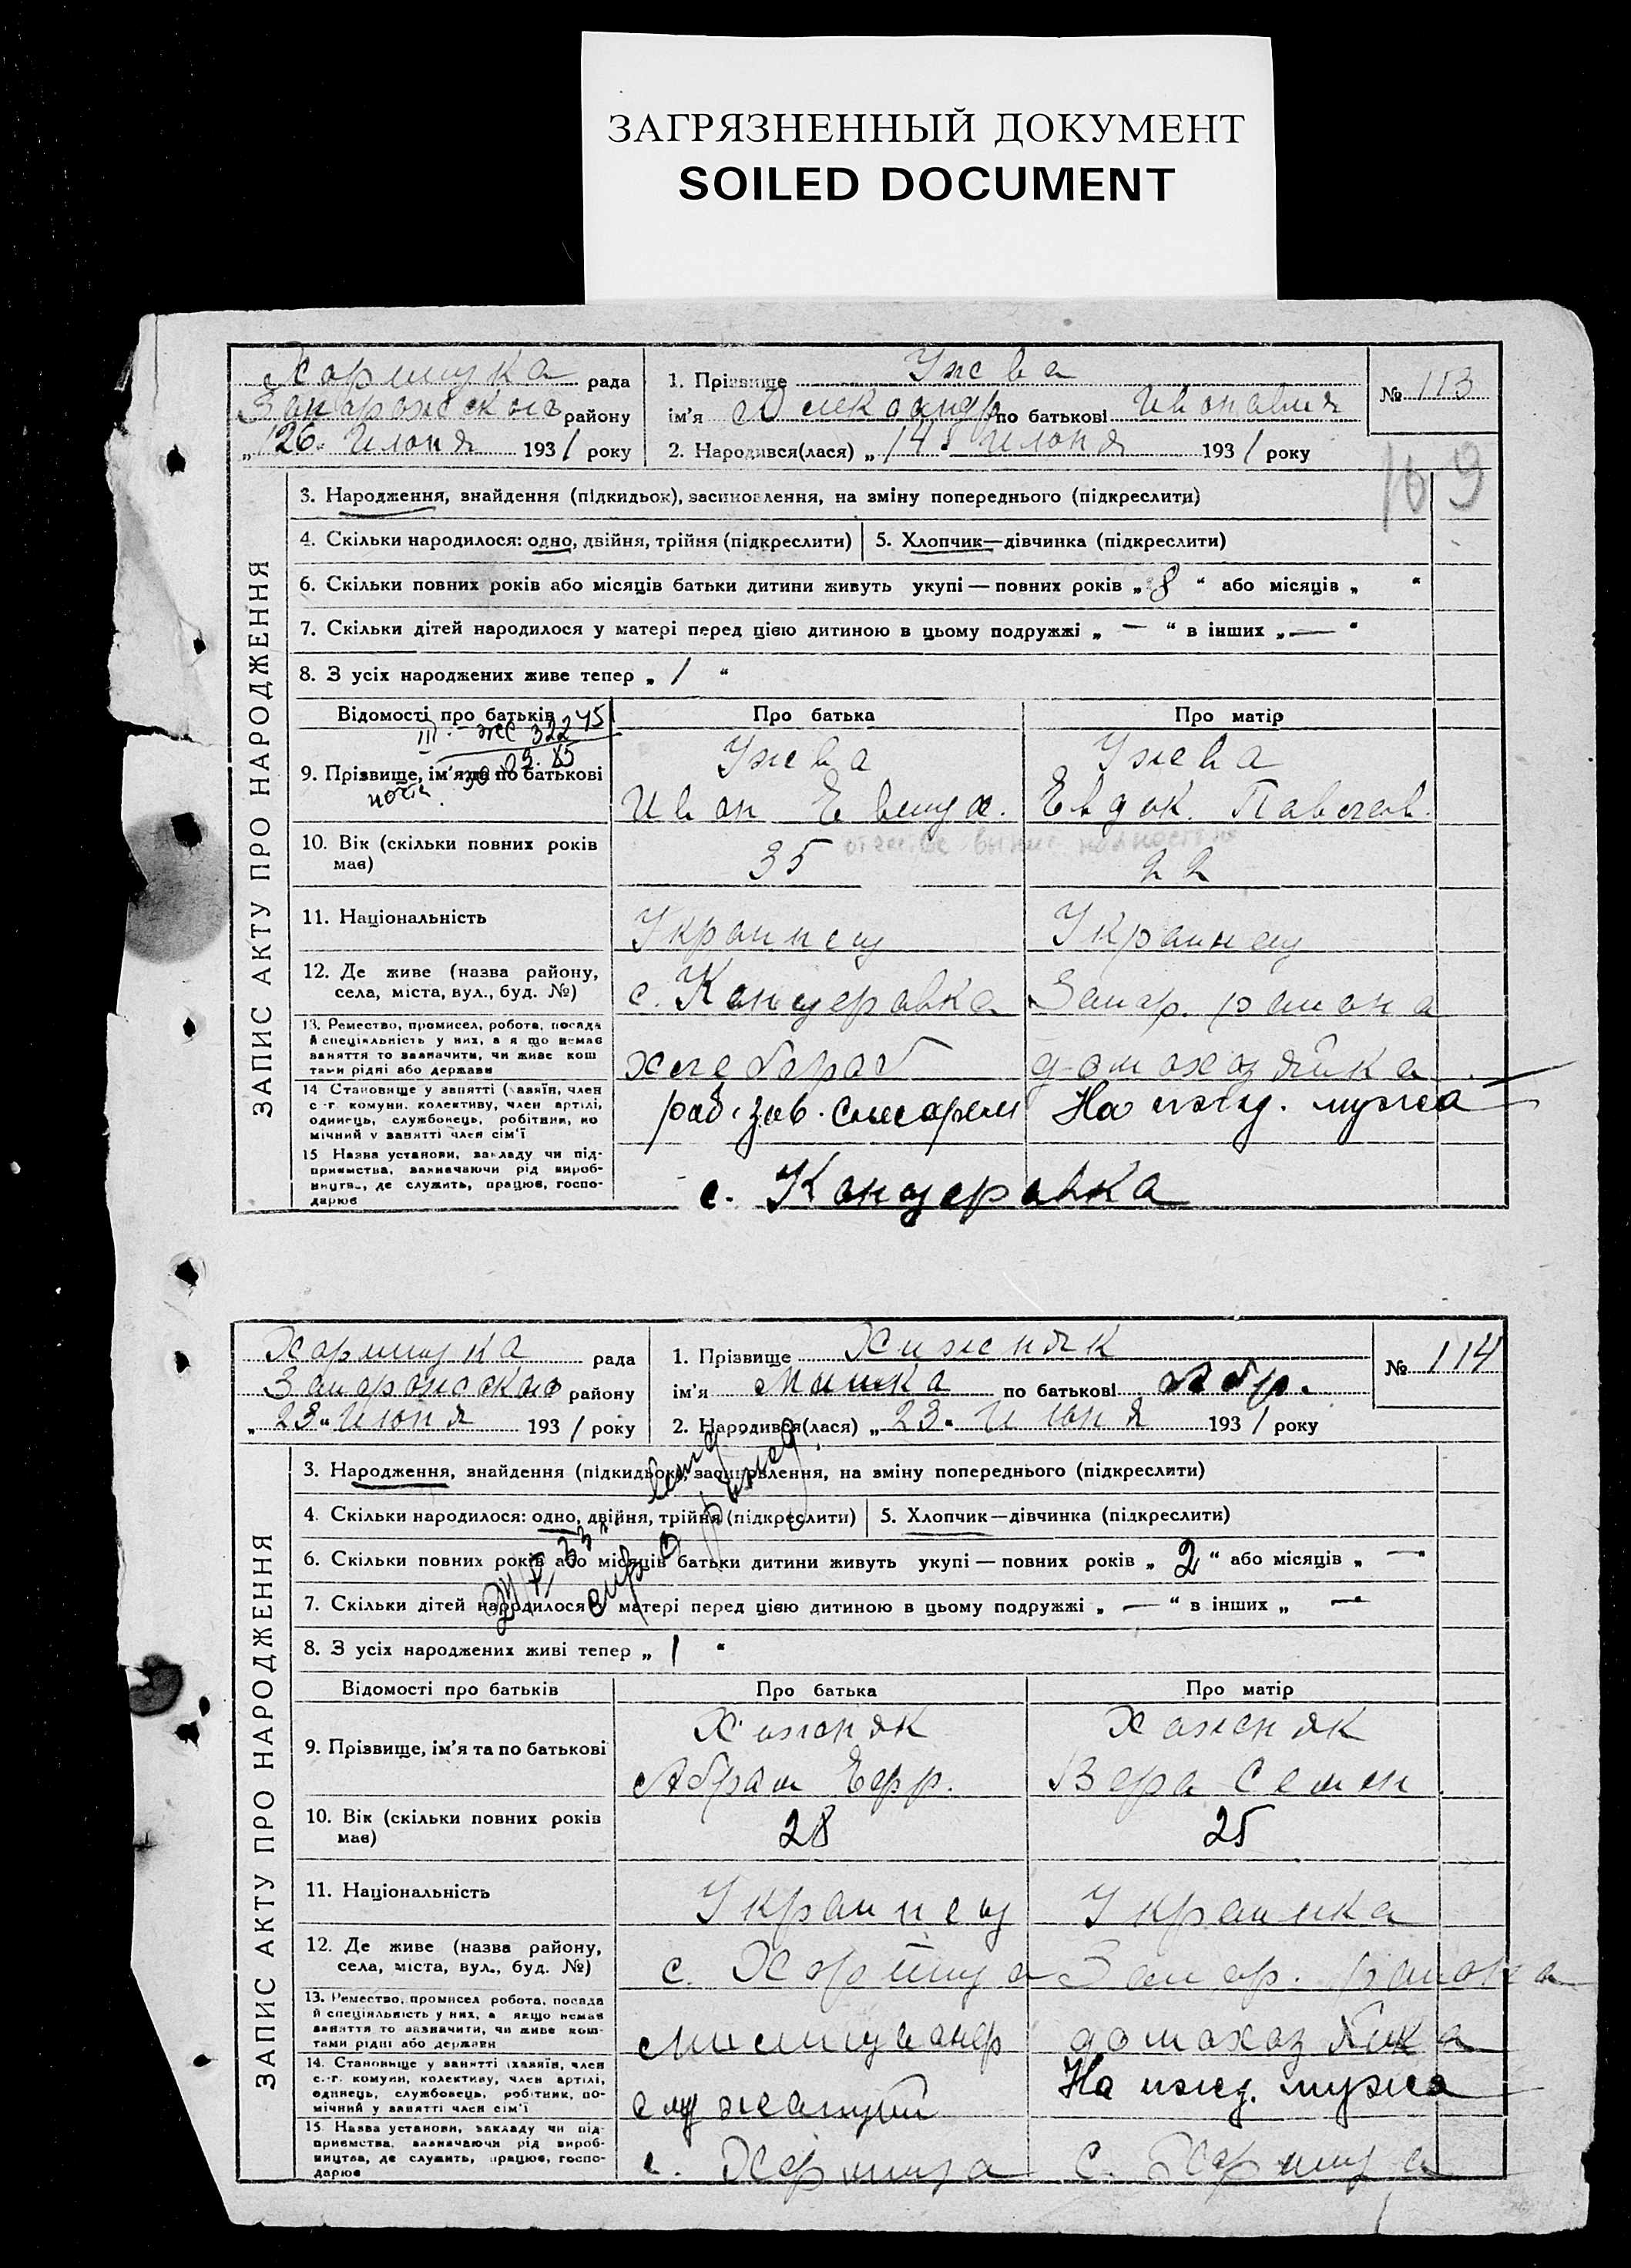 ЗАГРЯЗНЕННЫЙ ДОКУМЕНТ
SOILED DOCUMENT
рада
району
„26" Июня 1931 року
1. Прізвище Ужва
ім'я Александр по батькові
2. Народився(лася) „14" Июня 1931 року
№ 113
169
ЗАПИС АКТУ ПРО НАРОДЖЕННЯ
3. Народження, знайдення (підкидьок), засиновлення, на зміну попереднього (підкреслити)
4. Скільки народилося: одно, двійня, трійня (підкреслити)
5. Хлопчик—дівчинка (підкреслити)
6. Скільки повних років або місяців батьки дитини живуть укупі — повних років „8" або місяців „ "
7. Скільки дітей народилося у матері перед цією дитиною в цьому подружжі „ — " в інших „ — "
8. З усіх народжених живе тепер „ 1 "
Відомості про батьків
Про батька
Про матір
9. Прізвище, ім'я та по батькові
Ужва
Ужева
Иван
Евдок. Павлов.
10. Вік (скільки повних років має)
35
22
11. Національність
Украинец
Украинец
12. Де живе (назва району, села, міста, вул., буд. №)
с. Канцеровка
Запор. района
13. Ремество, промисел, робота, посада й спеціяльність у них, а якщо немає заняття то зазначити, чи живе коштами рідні або держави
хлебороб
домохозяйка
14. Становище у занятті (хазяїн, член с.-г. комуни, колективу, член артілі, одинець, службовець, робітник, помічний у занятті член сім'ї
раб. зав. слесарем
На ижд. мужа
15. Назва установи, закладу чи підприємства, зазначаючи рід виробництва, де служить, працює, господарює
с. Канцеровка
рада
району
„23" Июня 1931 року
1. Прізвище Хижняк
ім'я Мишка по батькові Абр.
2. Народився(лася) „23" Июня 1931 року
№ 114
ЗАПИС АКТУ ПРО НАРОДЖЕННЯ
3. Народження, знайдення (підкидьок), засиновлення, на зміну попереднього (підкреслити)
4. Скільки народилося: одно, двійня, трійня (підкреслити)
5. Хлопчик—дівчинка (підкреслити)
6. Скільки повних років або місяців батьки дитини живуть укупі — повних років „ 2 " або місяців „ — "
7. Скільки дітей народилося у матері перед цією дитиною в цьому подружжі „ — " в інших „ —
8. З усіх народжених живі тепер „ 1 "
Відомості про батьків
Про батька
Про матір
9. Прізвище, ім'я та по батькові
Хижняк
Хижняк
Абрам Ефр.
Вера Семен.
10. Вік (скільки повних років має)
28
25
11. Національність
Украинец
Украинка
12. Де живе (назва району, села, міста, вул., буд. №)
с. Хортица
Запор. района
13. Ремество, промисел робота, посада й спеціяльність у них, а якщо немає заняття то зазначити, чи живе коштами рідні або держави
милиционер
домохозяйка
14. Становище у занятті (хазяїн, член с.-г. комуни, колективу, член артілі, одинець, службовець, робітник, помічний у занятті член сім'ї
служащий
На ижд. мужа
15. Назва установи, закладу чи підприємства, зазначаючи рід виробництва, де служить, працює, господарює
с. Хортица
с. Хортица